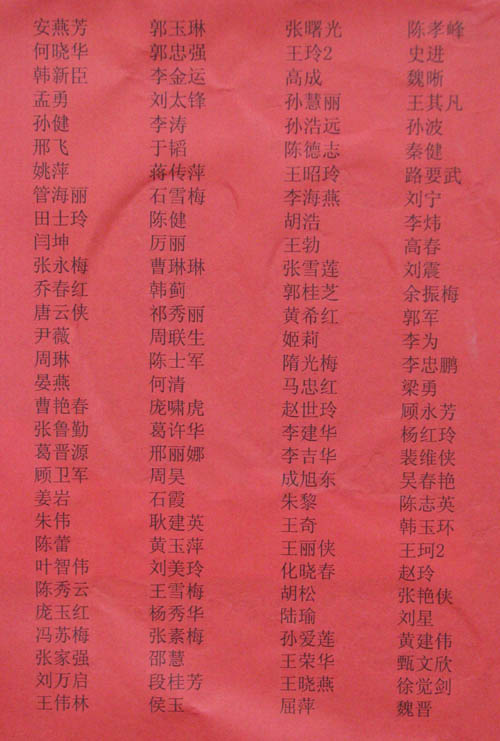 安燕芳 郭玉琳 张曙光 陈孝峰
何晓华 郭忠强 王玲2 史进
韩新臣 李金运 高成 魏晰
孟勇 刘太锋 孙慧丽 王其凡
孙健 李涛 孙浩远 孙波
邢飞 于韬 陈德志 秦健
姚萍 蒋传萍 王昭玲 路要武
管海丽 石雪梅 李海燕 刘宁
田士玲 陈健 胡浩 李炜
闫坤 厉丽 王勃 高春
张永梅 曹琳琳 张雪莲 刘震
乔春红 韩蓟 郭桂芝 余振梅
唐云侠 祁秀丽 黄希红 郭军
尹薇 周联生 姬莉 李为
周琳 陈士军 隋光梅 李忠鹏
晏燕 何清 马忠红 梁勇
曹艳春 庞啸虎 赵世玲 顾永芳
张鲁勤 葛许华 李建华 杨红玲
葛晋源 邢丽娜 李吉华 裴维侠
顾卫军 周昊 成旭东 吴春艳
姜岩 石霞 朱黎 陈志英
朱伟 耿建英 王奇 韩玉环
陈蕾 黄玉萍 王丽侠 王珂2
叶智伟 刘美玲 化晓春 赵玲
陈秀云 王雪梅 胡松 张艳侠
庞玉红 杨秀华 陆瑜 刘星
冯苏梅 张素梅 孙爱莲 黄建伟
张家强 邵慧 王荣华 甄文欣
刘万启 段桂芳 王晓燕 徐觉剑
王伟林 侯玉 屈萍 魏晋